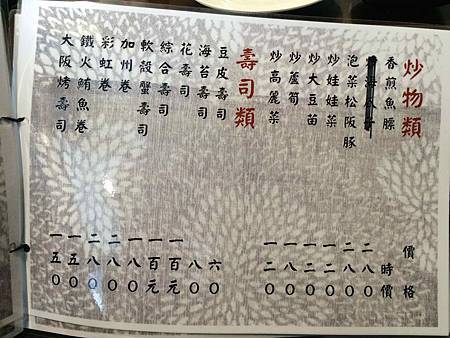 炒物類 價格
香煎魚膘 時價
二八0
泡菜松阪豚 二八0
炒娃娃菜 一二0
炒大豆苗 一二0
炒蘆筍 一八0
炒高麗菜 一二0
壽司類
豆皮壽司 六0
海苔壽司 八0
花壽司 一百元
綜合壽司 一百元
軟殼蟹壽司 一八0
加州卷 二八0
彩虹卷 二八0
鐵火鮪魚卷 一五0
大阪烤壽司 一五0